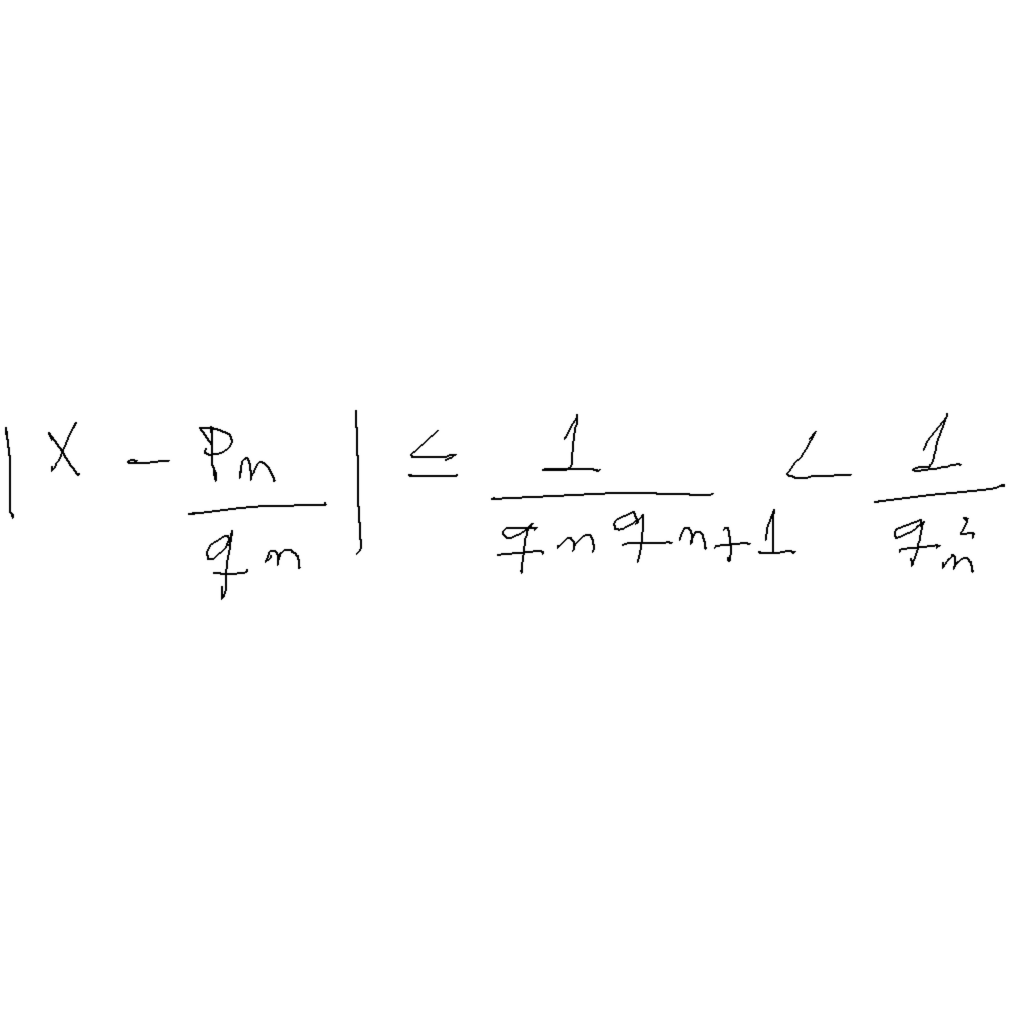 \left| x - \frac{p_n}{q_n} \right| \leq \frac{1}{q_n q_{n+1}} < \frac{1}{q_n^2}